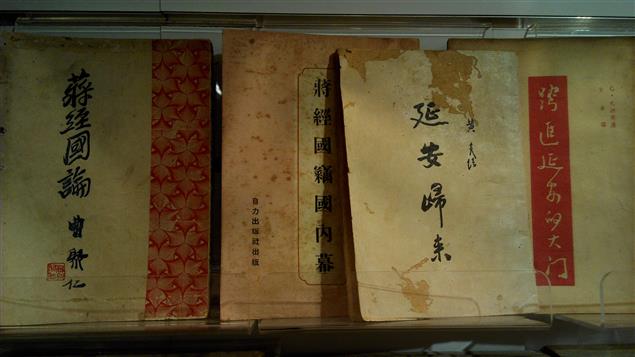 蔣經國論
曹聚仁
蔣經國竊國內幕
自力出版社出版
延安歸来
黄炎培
跨进延安的大门